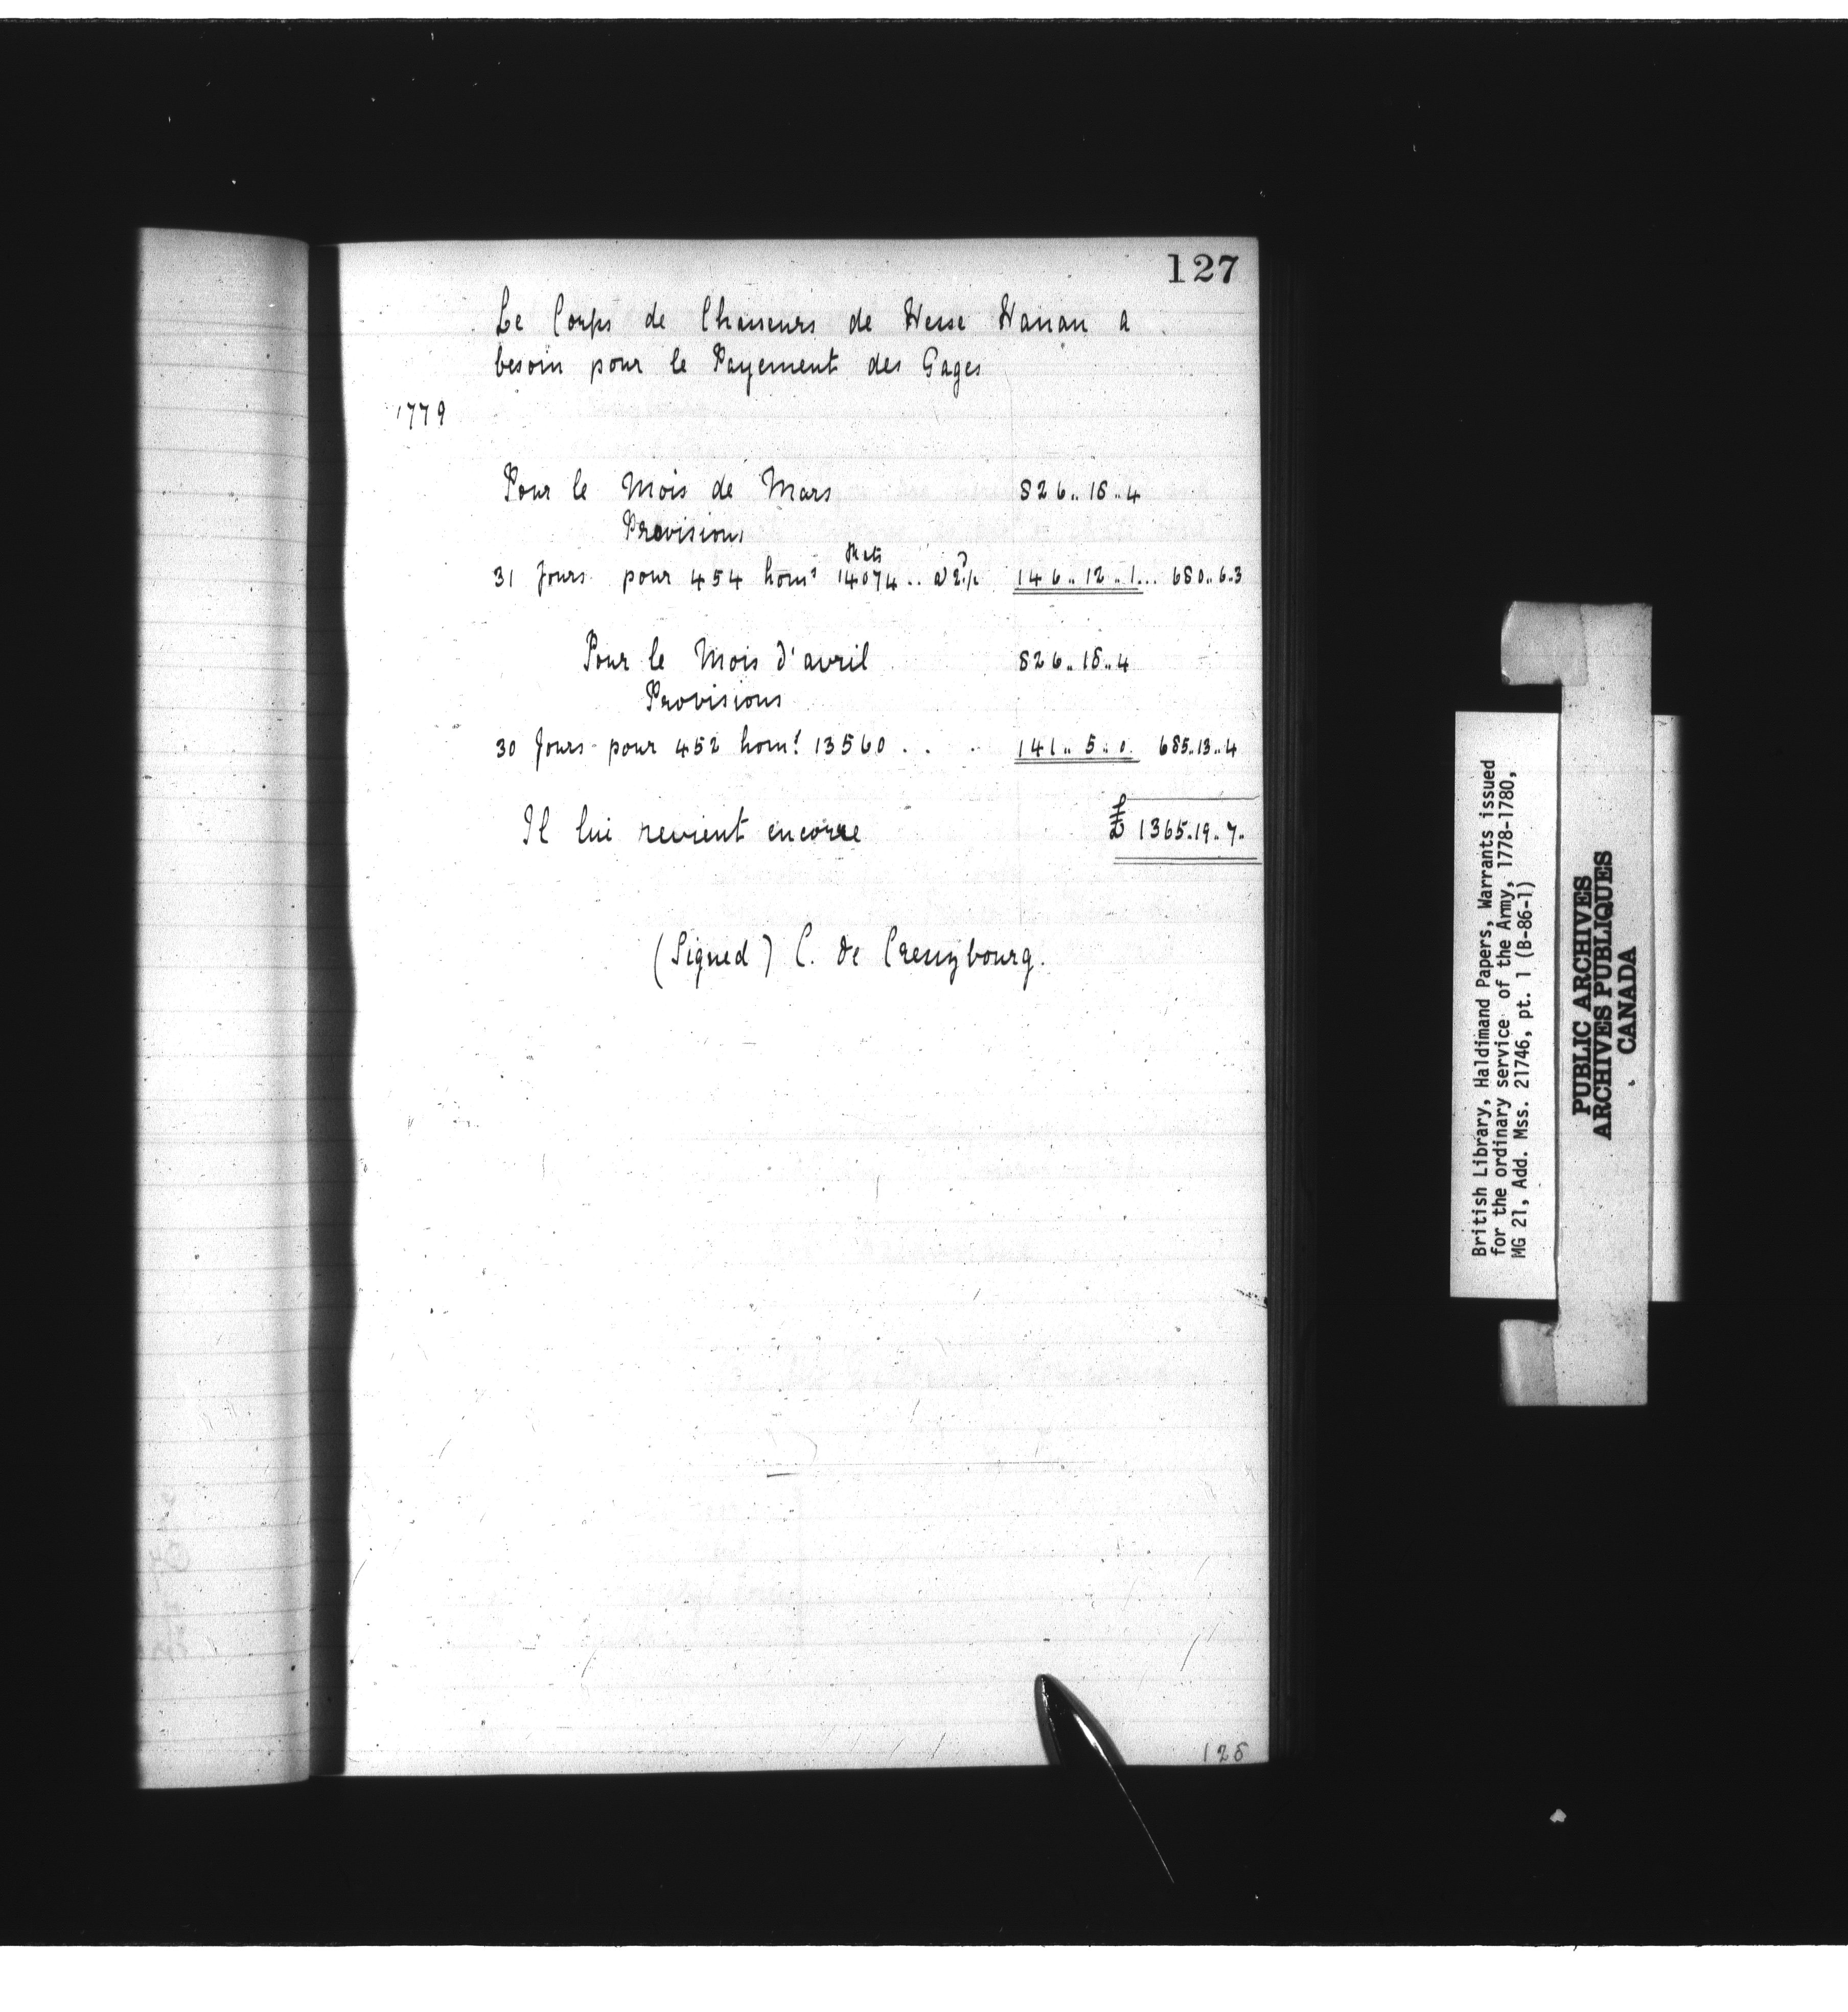 127
Le Corps de Chasseurs de Hesse Hanau a
besoin pour le Payement des Gages
1779
Pour le Mois de Mars 826..18..4
Provisions
Rats
31 Jours pour 454 homs 14074.. a 2d½ 146..12..1... 680..6.3
Pour le Mois d'avril 826..18..4
Provisions
30 Jours pour 452 hom: 13560 . . . 141..5..0. 685.13..4
Il lui revient encorre £ 1365.19.7.
(Signed) C. de Creuzbourg.
128
British Library, Haldimand Papers, Warrants issued
for the ordinary service of the Army, 1778-1780,
MG 21, Add. Mss. 21746, pt. 1 (B-86-1)
PUBLIC ARCHIVES
ARCHIVES PUBLIQUES
CANADA